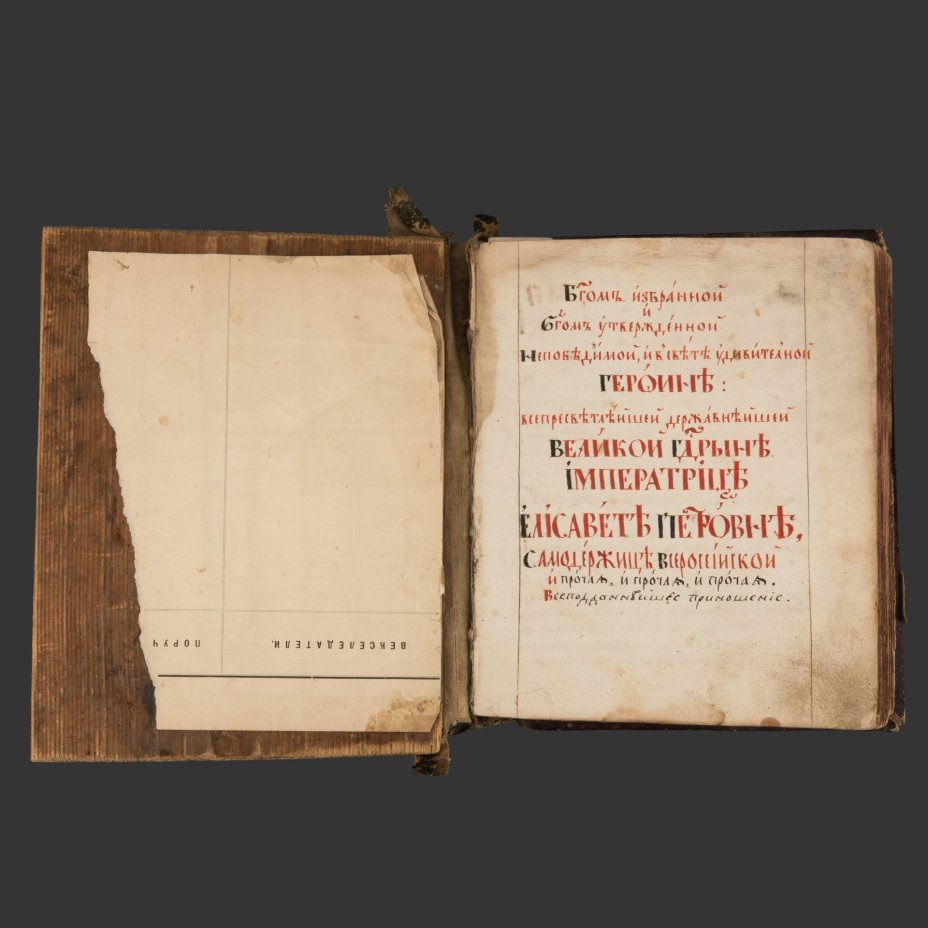 ВЕКСЕЛЕДАТЕЛИ. ПОРУЧ
Бг҃омъ и҆збра́нной
и҆
Бг҃омъ у҆твержде́нной
Непобѣди́мой, и҆ в̾свѣ́тѣ уди́вителной
ГЕРѠ́ИНѢ :
всепресвѣтлѣ́йшей держа́внѣйшей
ВЕЛИ́КОЙ Гдⷭ҇РЫНѢ
ІМПЕРАТРІ́ЦѢ
ЕЛІСАВЕ́ТѢ ПЕТРО́ВНѢ,
САМОДЕ́РЖИЦѢ Всеросі́йской
и҆ про́чаѧ, и҆ про́чаѧ, и҆ про́чаѧ.
Всеподданнѣйшее приношеніе.